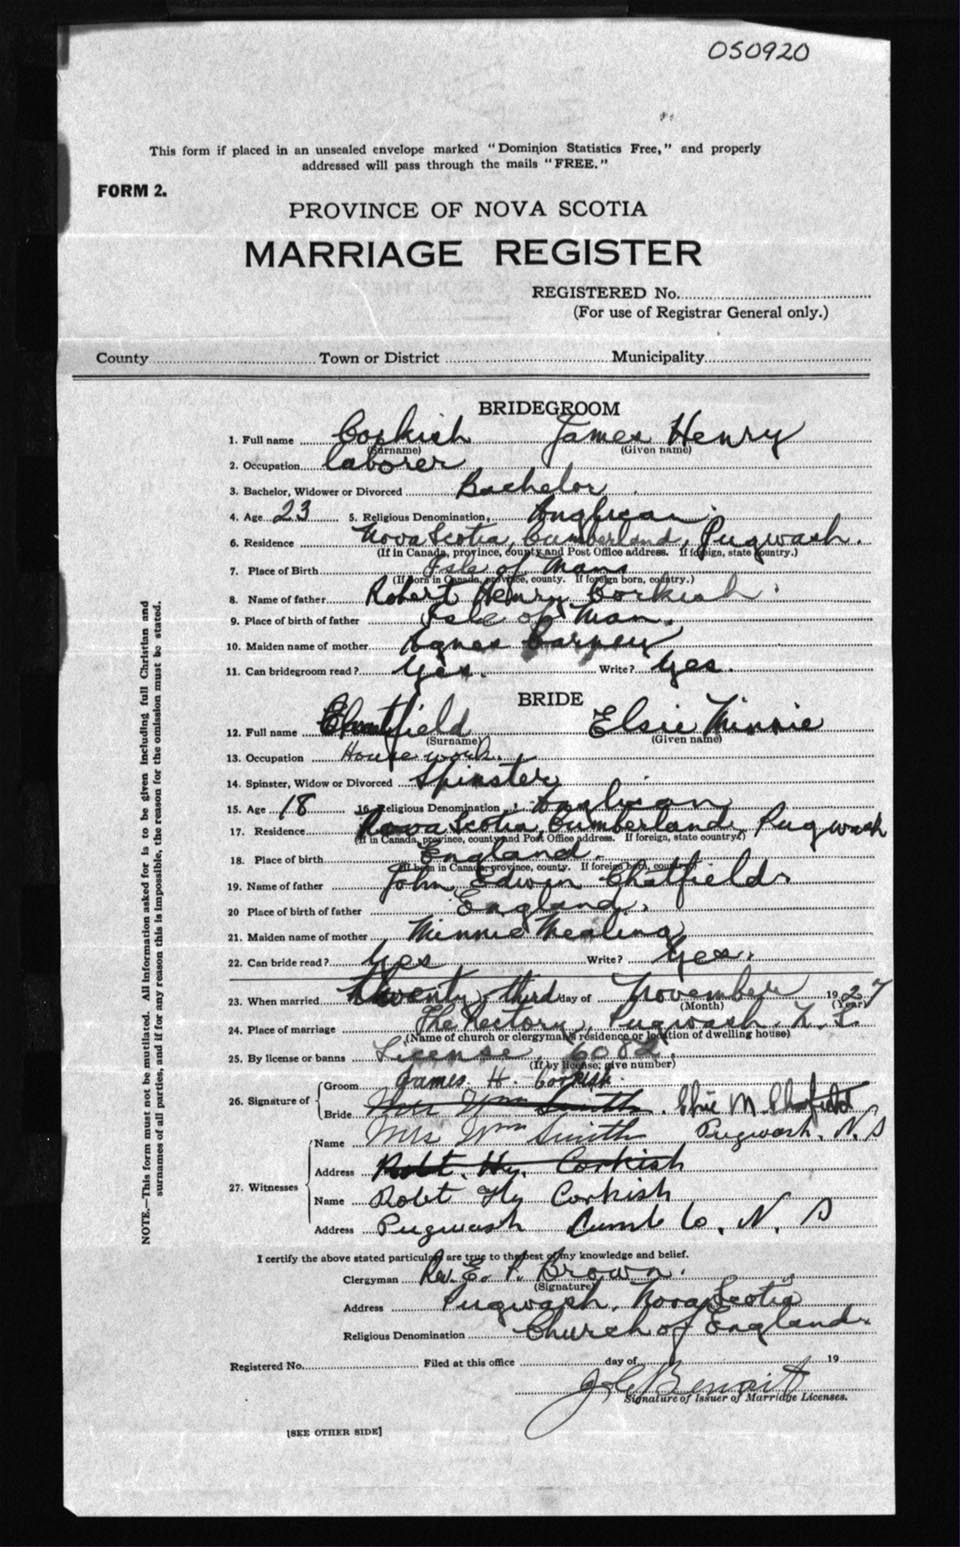 050920
This form if placed in an unsealed envelope marked "Dominion Statistics Free," and properly
addressed will pass through the mails "FREE."
FORM 2.
PROVINCE OF NOVA SCOTIA
MARRIAGE REGISTER
REGISTERED No.
(For use of Registrar General only.)
County Town or District Municipality
BRIDEGROOM
1. Full name Corkish James Henry
(Surname) (Given name)
2. Occupation laborer
3. Bachelor, Widower or Divorced Bachelor
4. Age 23 5. Religious Denomination Anglican
6. Residence Nova Scotia, Cumberland, Pugwash.
(If in Canada, province, county and Post Office address. If foreign, state country.)
7. Place of Birth Isle of Man
(If born in Canada, province, county. If foreign born, country.)
8. Name of father Robert Henry Corkish
9. Place of birth of father Isle of Man.
10. Maiden name of mother Agnes
11. Can bridegroom read? Yes. Write? Yes.
BRIDE
12. Full name Chatfield Elsie Minnie
(Surname) (Given name)
13. Occupation House work.
14. Spinster, Widow or Divorced Spinster
15. Age 18 16. Religious Denomination Anglican
17. Residence Nova Scotia, Cumberland, Pugwash
(If in Canada, province, county and Post Office address. If foreign, state country.)
18. Place of birth England.
(If born in Canada, province, county. If foreign born, country.)
19. Name of father John Edwin Chatfield
20 Place of birth of father England.
21. Maiden name of mother Minnie Mealing
22. Can bride read? Yes Write? Yes.
23. When married Twenty third day of November 1927
(Month) (Year)
24. Place of marriage The Rectory, Pugwash. N. S.
(Name of church or clergyman's residence or location of dwelling house)
25. By license or banns License, 6082,
(If by license, give number)
26. Signature of Groom James H. Corkish.
Bride Mrs Wm Smith. Elsie M. Chatfield
27. Witnesses Name Mrs Wm Smith Pugwash, N. S
Address Robt. Hy. Corkish
Name Robt Hy Corkish
Address Pugwash Cumb Co, N. S
I certify the above stated particulars are true to the best of my knowledge and belief.
Clergyman Rev. E. P. Brown.
(Signature)
Address Pugwash, Nova Scotia
Religious Denomination Church of England.
Registered No. Filed at this office day of 19
J G Benoit
Signature of Issuer of Marriage Licenses.
[SEE OTHER SIDE]
NOTE.—This form must not be mutilated. All information asked for is to be given including full Christian and
surnames of all parties, and if for any reason this is impossible, the reason for the omission must be stated.